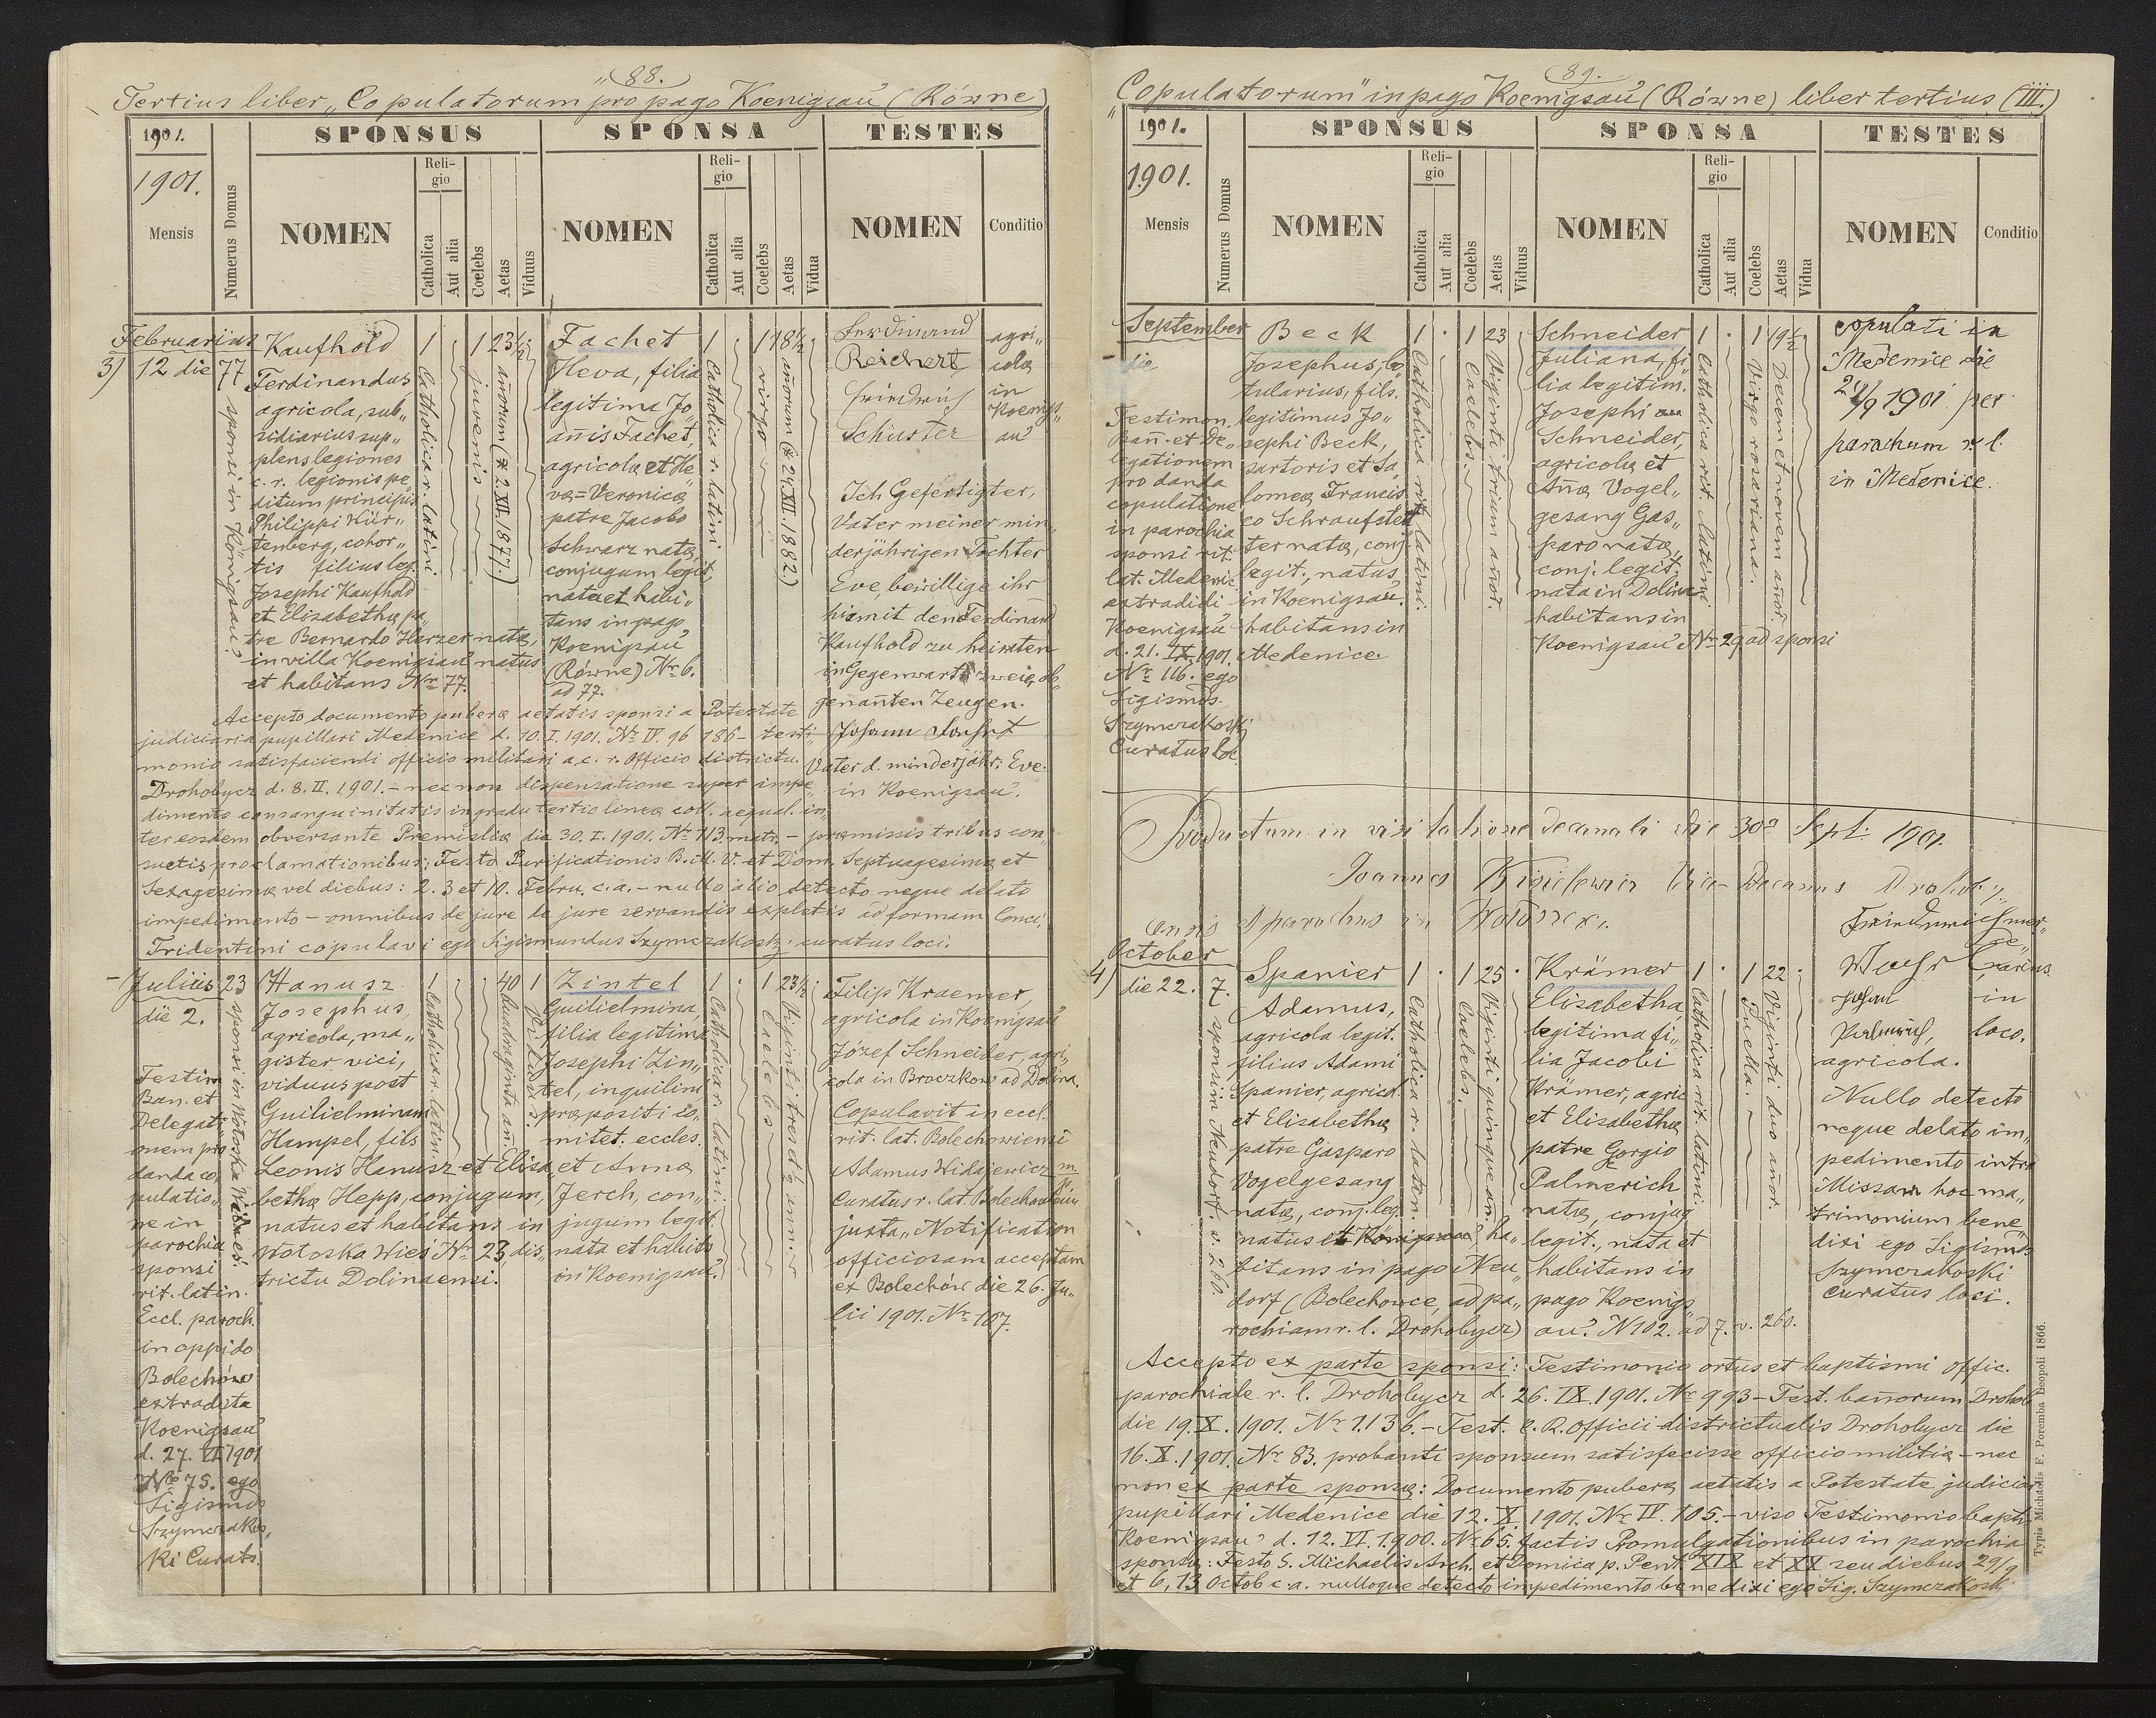 „88.
Tertius liber „Copulatorum pro pago Koenigsau (Równe)
1901.
SPONSUS
SPONSA
TESTES
1901.
Mensis
Numerus Domus
NOMEN
Religio
Catholica
Aut alia
Coelebs
Aetas
Viduus
NOMEN
Religio
Catholica
Aut alia
Coelebs
Aetas
Vidua
NOMEN
Conditio
Februarius
3) 12 die
77
sponsi in Königsau
Kaufhold
Ferdinandus,
agricola, sub„
sidiarius sup„
plens legiones
c. r. legionis pe„
ditum principis
Philippi Wür„
tenberg, cohor„
tis filius leg.
Josephi Kaufhold
et Elisabethæ pa„
tre Bernardo Harzer natæ,
in villa Koenigsau natus
et habitans Nr 77.
1
Catholica r. latini.
1
juvenis
23 1/2
annorum (* 2.XII.1877.)
Fachet
Heva, filia
legitima Jo
annis Fachet,
agricolæ et He
væ=Veronicæ
patre Jacobo
Schwarz natæ,
conjugum legit,
nata et habi„
tans in pago
Koenigsau
(Równe) Nr 6.
ad 77.
1
Catholica r. latini.
1
virgo
18 1/2
annorum (* 24.XII.1882)
Ferdinand
Reichert
Friedrich
Schuster
agri„
cola
in
Koenigs„
au
Ich Gefertigter,
Vater meiner min„
derjährigen Tochter
Eve, bewillige ihr
hiemit den Ferdinand
Kaufhold zu heiraten
in Gegenwart zweier ob„
genannten Zeugen.
Johann Facht
Vater d. minderjähr: Eve
in Koenigsau.
Accepto documento puberæ aetatis sponsi a Potestate
judiciaria pupillari Medenice d. 10.I.1901. Nr IV. 96/186 – testi„
monio satisfaciendi officio militari a c. r. Officio districtu.
Drohobycz d. 8.II.1901. – nec non dispensatione super impe„
dimento consanguinitatis in gradu tertio lineæ coll. aequal. in„
ter eosdem obversante Premisliæ die 30.I.1901. Nr 113 matr. – præmissis tribus con„
suetis proclamationibus: Festo Purificationis B.M.V. et Dom. Septuagesimæ et
Sexagesimæ vel diebus: 2. 3 et 10. Febru. c.a. – nullo alio detecto neque delato
impedimento – omnibus de jure de jure servandis expletis ad formam Conci.
Tridentini copulavi ego Sigismundus Szymczakoski curatus loci.
Julius
die 2.
23
sponsi in Wołoska Wieś.
Hanusz
Josephus,
agricola, ma„
gister vici,
viduus post
Guilielminam
Hampel, fils
Leonis Hanusz et Elisa
bethæ Hepp, conjugum,
natus et habitans in
Wołoska Wieś Nr 23, dis„
trictu Dolinaensi.
1
Catholica r. latini.
40
Quadraginta an.
1
Viduus
Zintel
Guilielmina,
filia legitima
Josephi Zin„
tel, inquilini
præpositi co„
mitet. eccles.
et Anna
Jerch, con„
jugum legit.
nata et habits
in Koenigsau.
1
Catholica r. latini.
1
Caelebs
23 1/2
Viginti tres et 1/2 ann.
Filip Kraemer,
agricola in Koenigsau
Józef Schneider, agri„
cola in Broczków ad Dolina.
Copulavit in eccl.
rit. lat. Bolechowiensi
Adamus Widajewicz mp.
Curatus r. lat. Bolechowieni
juxta „Notification
officiosam acceptam
ex Bolechów die 26. Ju„
lii 1901. Nr 187.
Testim
Ban. et
Delegati
onem pro
danda co„
pulatio„
ne in
parochia
sponsi
rit. latin.
Eccl. paroch.
in oppido
Bolechów
extradita
Koenigsau
d. 27. VI 1901
No 75. ego
Sigismds
Szymczakos„
ki Curats.
89.
„Copulatorum” in pago Koenigsau (Równe) liber tertius (III.)
1901.
SPONSUS
SPONSA
TESTES
1901.
Mensis
Numerus Domus
NOMEN
Religio
Catholica
Aut alia
Coelebs
Aetas
Viduus
NOMEN
Religio
Catholica
Aut alia
Coelebs
Aetas
Vidua
NOMEN
Conditio
September
die
Testimon.
Bann. et De„
legationem
pro danda
copulatione
in parochia
sponsi rit.
lat. Medenic.
extradidi
Koenigsau
d. 21. IX. 1901.
Nr 116. ego
Sigismds.
Szymczakoski
Curatus loc.
Beck
Josephus,
tularius, fils.
legitimus Jo„
sephi Beck,
sartoris et Sa„
lomea Francis
co Schraufstet
ter natæ, conj.
legit., natus
in Koenigsau.
habitans in
Medenice.
1
Catholica rit. latini.
1
Caelebs.
23
Viginti trium annor.
Schneider
Juliana, fi„
lia legitim.
Josephi
Schneider,
agricolæ et
Anna Vogel„
gesang Gas„
paro natæ,
conj. legit.
nata in Dolina
habitans in
Koenigsau Nr 29 ad sponsi
1
Catholica rit. latini
1
Virgo rosariana.
19 1/2
Decem et novem annor.
copulati in
Medenice die
24/9 1901 per
parochum r. l.
in Medenice.
Productum in visitatione decanali die 30a Sept: 1901.
Joannes Vice-Decanus Drohoby„
censis parochus in
October
4) die 22.
7.
sponsi in Neudorf. v. 260.
Spanier
Adamus,
agricola legit.
filius Adami
Spanier, agricol.
et Elisabethæ
patre Gasparo
Vogelgesang
natæ, conj. leg.
natus et Königsau, ha„
bitans in pago Neu„
dorf (Bolechowce, ad pa„
rochiam r. l. Drohobycz)
1
Catholica r. latin.
1
Caelebs.
25
Viginti quinque an.
Krämer
Elisabetha,
legitima fi„
lia Jacobi
Krämer, agric
et Elisabethæ
patre Gorgio
Palmerich
natæ, conjug
legit., nata et
habitans in
pago Koenigs„
au. N 102. ad 7. v. 260.
1
Catholica rit. latini.
1
Puella.
22
Viginti duo annor.
agricola.
in
loco.
Nullo detecto
neque delato im„
pedimento intra
Missam hoc ma„
trimonium bene„
dixi ego Sigismds
Szymczakoski
curatus loci.
Accepto ex parte sponsi: Testimonio ortus et baptismi offic.
parochiale r. l. Drohobycz d. 26. IX. 1901. Nr 993 – Test. bannorum Drohob
die 19. X. 1901. Nr 1.136. – Test. C. R. Officii districtualis Drohobycz die
16. X. 1901. Nr 83. probanti sponsum satisfecisse officio militiæ – nec
non ex parte sponsæ: Documento puberæ aetatis a Potestate judiciar
pupillari Medenice die 12. X. 1901. Nr IV. 105. – viso Testimonio bapti
Koenigsau d. 12. VI. 1900. Nr 65. factis Promulgationibus in parochia
sponsæ: Festo S. Michaelis Arch. et Domica p. Pent. XIX et XX seu diebus 29/9
et 6, 13 Octob c. a. nulloque detecto impedimento benedixi ego Sig. Szymczakoski
Typis Michaelis F. Poremba Leopoli 1866.